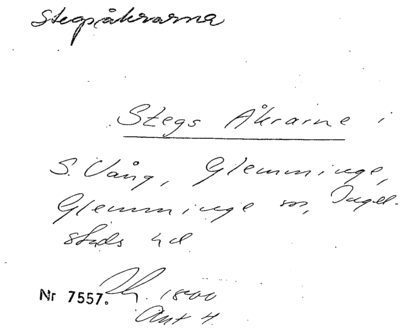 Stegsåkrarna
Stegs Åkrarne i
S. Vång, Glemminge,
Glemminge sn, Ingel-
stads hd
Nr 7557. 1800
Akt 4